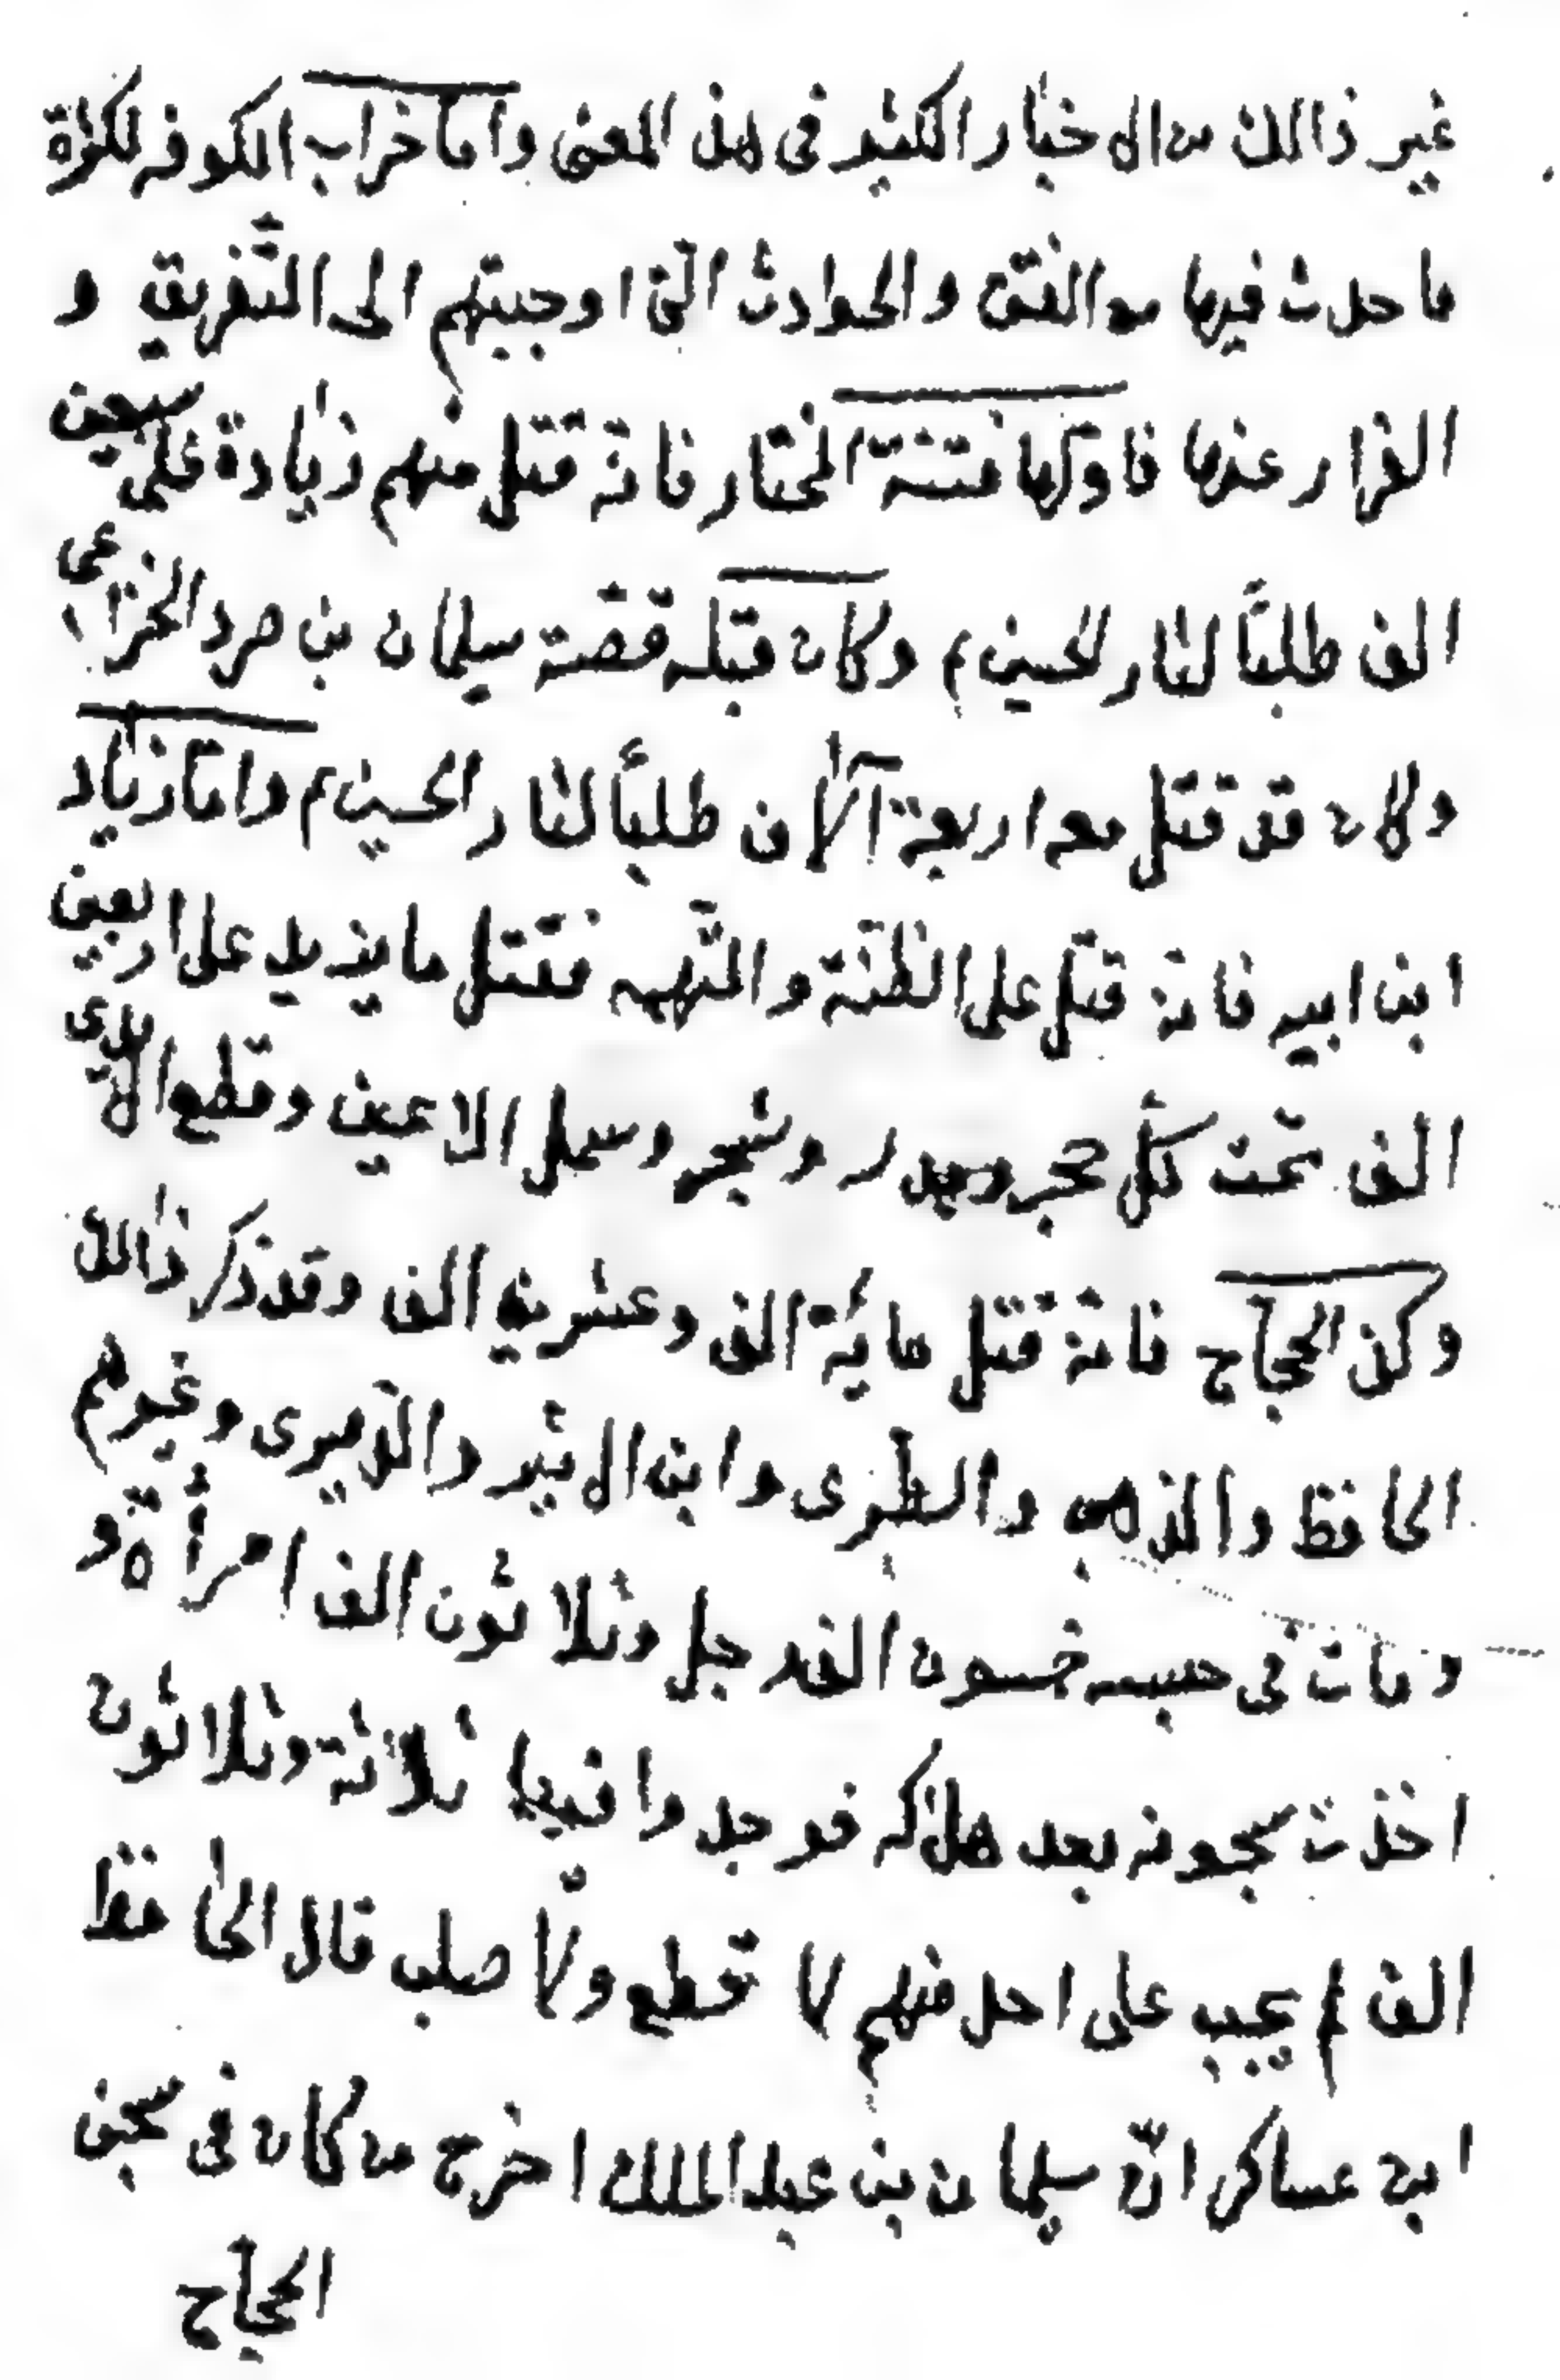 غير ذالك من الاخبار الكثير فى هذ المعنى واما خراب الكوفه لكثرة
ما حدث فيها من الفتن والحوادث الّتى اوجبتهم الى التّفريق و
الفرار عنها فاولها فتنة المختار فانّه قتل منهم زيادة على سبعين
الف طلبًا لثار الحسين ع وكان قبله قصّة سليمان بن صرد الخزاعى
وكان قد قتل معه اربعة آلاف طلبًا لثار الحسين ع وامّا زياد
ابن ابيه فانّه قتل على الظنّة والتّهمه فقتل ما يزيد على اربعين
الف تحت كلّ حجر ومدر وشجر وسمل الاعين وقطع الايدى
وكذ الحجّاج فانّه قتل مائة الف وعشرين الف وقد ذكر ذالك
الحافظ والذهبى والطبرى وابن الاثير والدّميرى وغيرهم
ومات فى حبسه خمسون الف رجل وثلاثون الف امرأة و
اخذت سجونه بعد هلاكه فوجدوا فيها ثلاثة وثلاثون
الف لم يجب على احد منهم لا قطع ولا صلب قال الحافظ
ابن عساكر انّ سليمان بن عبد الملك اخرج من كان فى سجن
الحجّاج